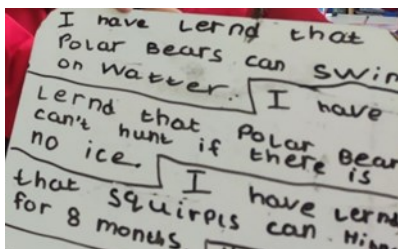 I have Lernd that
Polar Bears can swim
on Watter. I have
Lernd that Polar Bear
can't hunt if there is
no ice. I have Lernd
that squirpls can
for 8 months